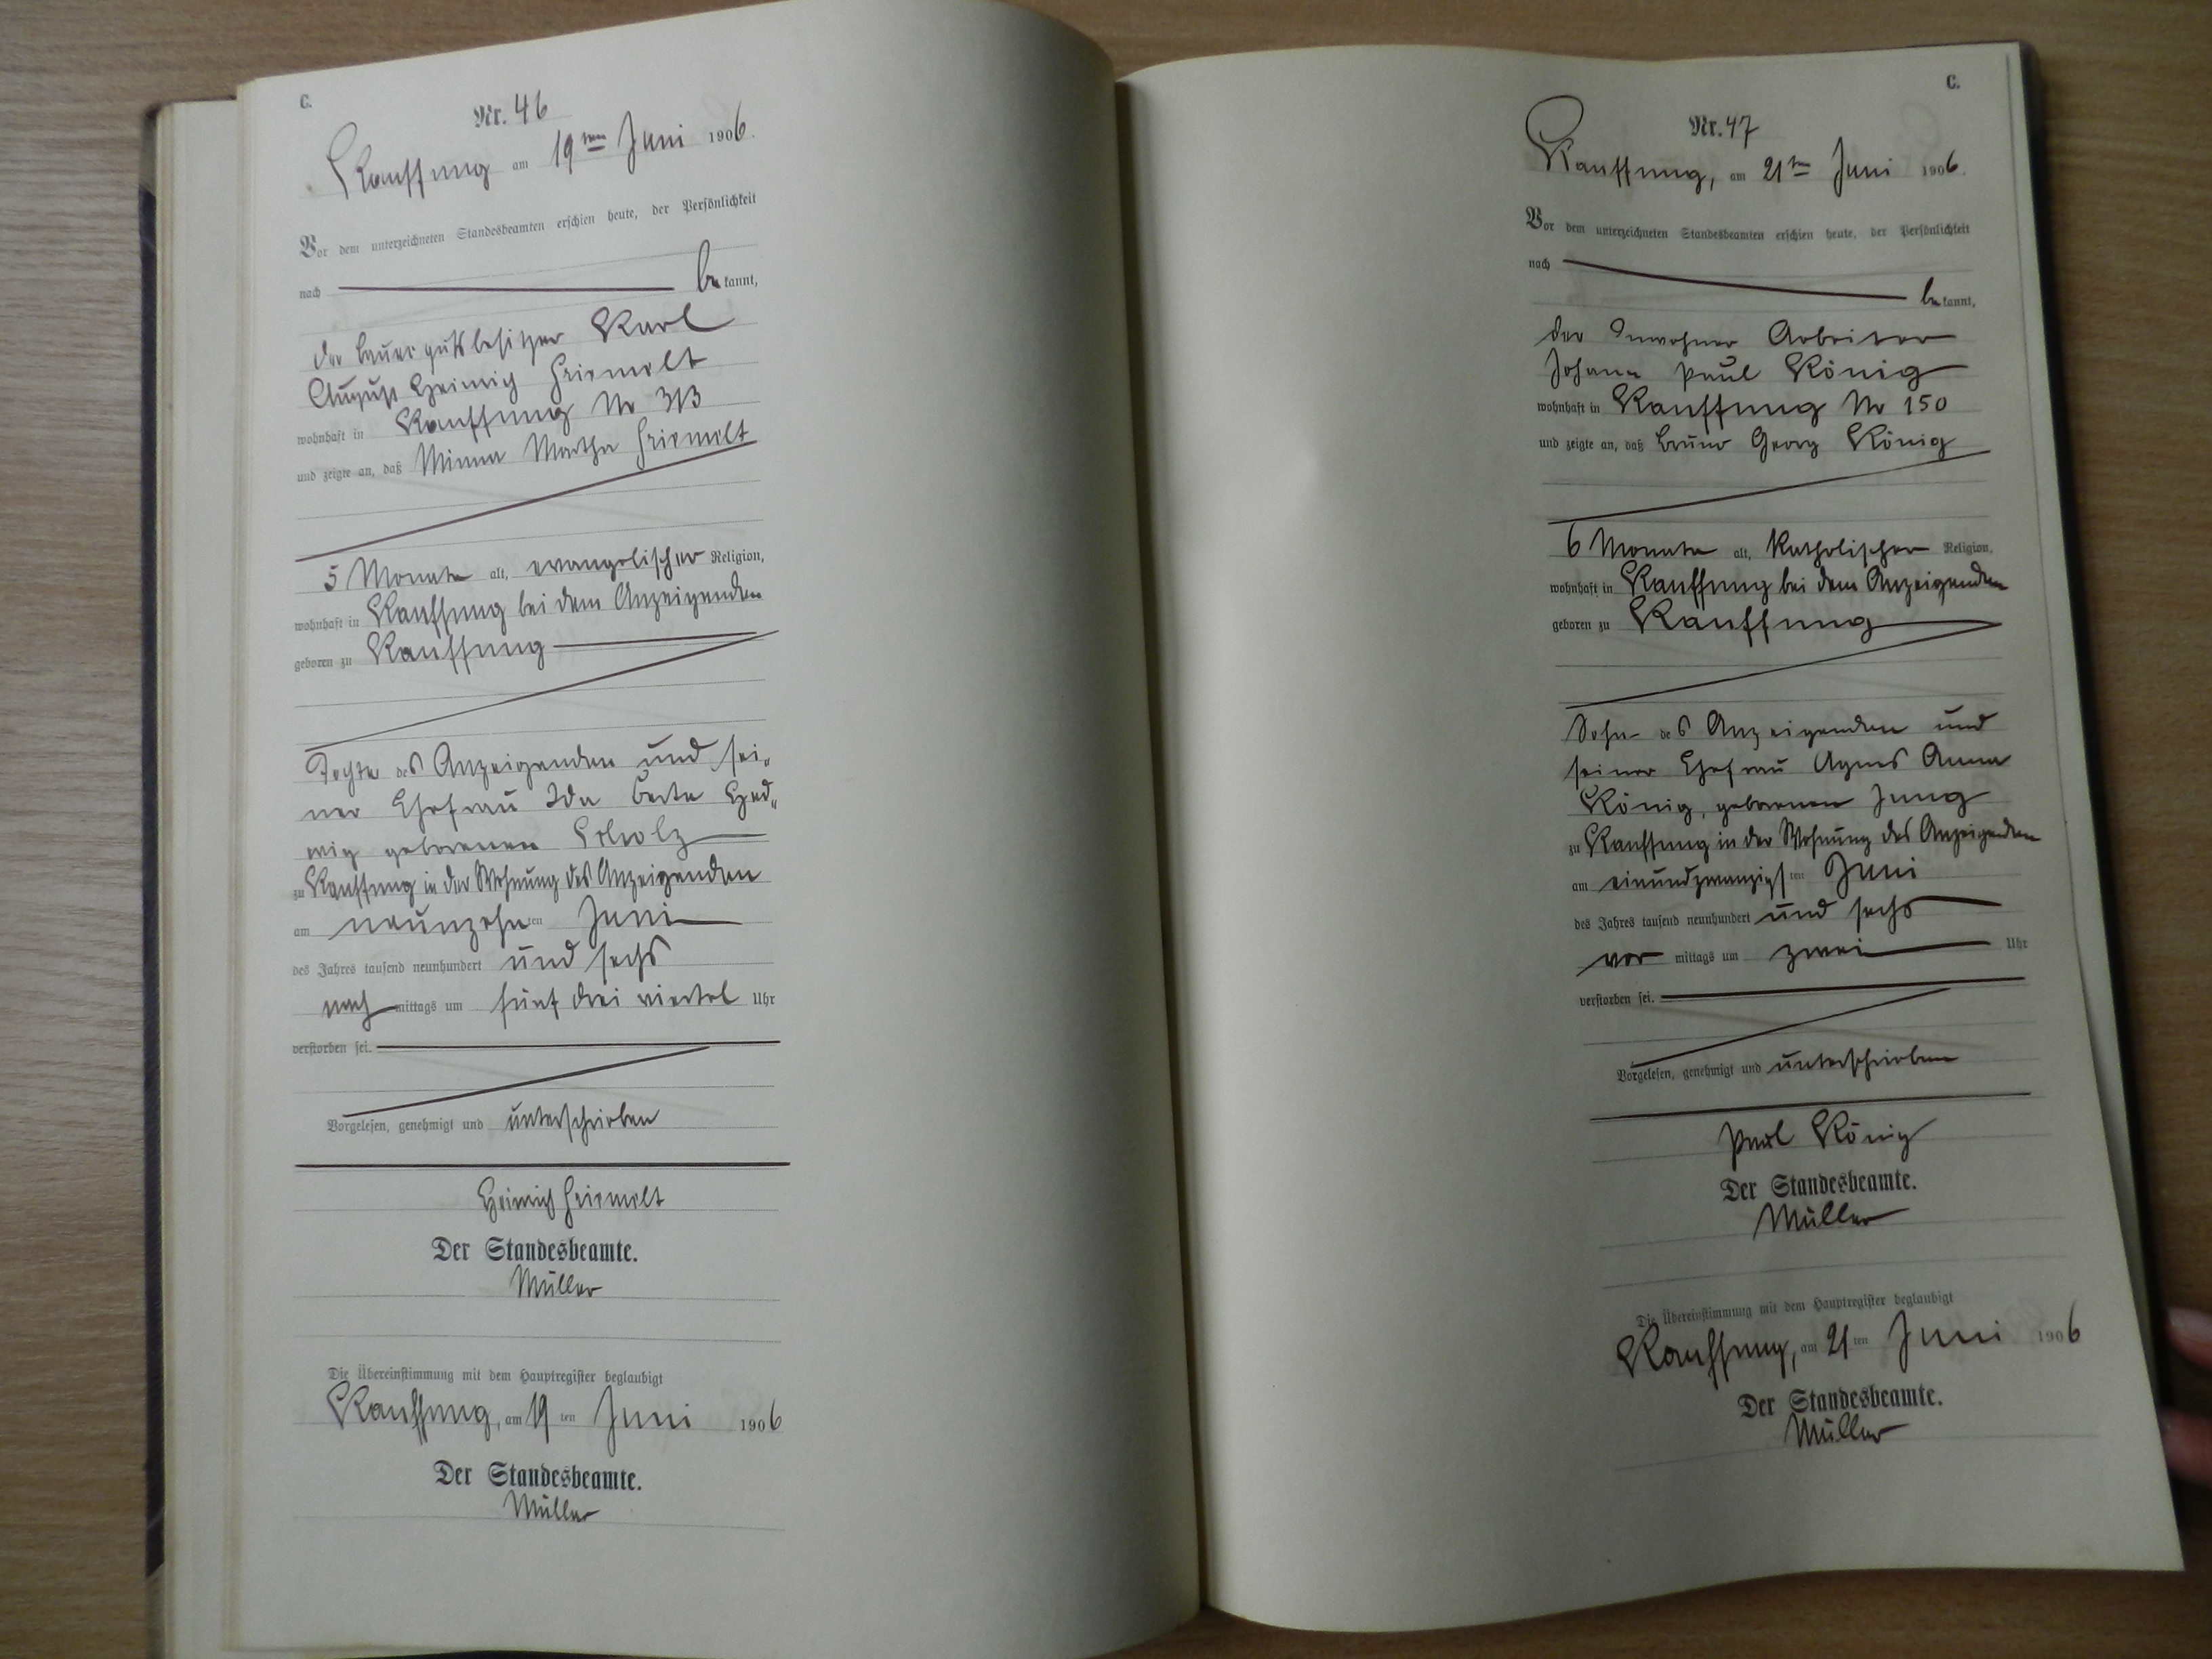 C.
Nr. 46
Kauffung am 19ten Juni 1906.
Vor dem unterzeichneten Standesbeamten erschien heute, der Persönlichkeit
nach be kannt,
der Bauergutsbesitzer Karl
August Heinrich Friemelt
wohnhaft in Kauffung No 313
und zeigte an, daß Minna Martha Friemelt
5 Monate alt, evangelischer Religion,
wohnhaft in Kauffung bei dem Anzeigenden
geboren zu Kauffung
Tochter des Anzeigenden und sei-
ner Ehefrau Ida Berta Hed-
wig geborenen Scholz
zu Kauffung in der Wohnung des Anzeigenden
am neunzehnten Juni
des Jahres tausend neunhundert und sechs
nach mittags um fünf drei viertel Uhr
verstorben sei.
Vorgelesen, genehmigt und unterschrieben
Heinrich Friemelt
Der Standesbeamte.
Müller
Die Übereinstimmung mit dem Hauptregister beglaubigt
Kauffung, am 19ten Juni 1906
Der Standesbeamte.
Müller
C.
Nr. 47
Kauffung, am 21ten Juni 1906.
Vor dem unterzeichneten Standesbeamten erschien heute, der Persönlichkeit
nach be kannt,
der Inwohner Arbeiter
Johann Paul König
wohnhaft in Kauffung No 150
und zeigte an, daß Bruno Georg König
6 Monate alt, katholischer Religion,
wohnhaft in Kauffung bei dem Anzeigenden
geboren zu Kauffung
Sohn des Anzeigenden und
seiner Ehefrau Agnes Anna
König, geborenen Jung
zu Kauffung in der Wohnung des Anzeigenden
am einundzwanzigsten Juni
des Jahres tausend neunhundert und sechs
vor mittags um zwei Uhr
verstorben sei.
Vorgelesen, genehmigt und unterschrieben
Paul König
Der Standesbeamte.
Müller
Die Übereinstimmung mit dem Hauptregister beglaubigt
Kauffung, am 21ten Juni 1906
Der Standesbeamte.
Müller